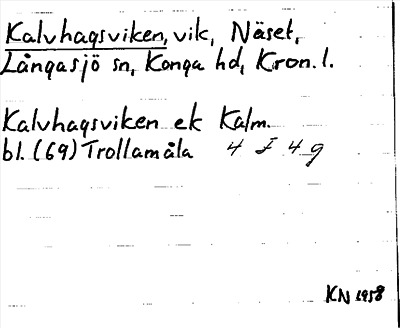 Kalvhagsviken, vik, Näset,
Långasjö sn, Konga hd, Kron. l.
Kalvhagsviken ek Kalm.
bl. (69) Trollamåla 4 F 4 g
KN 1958